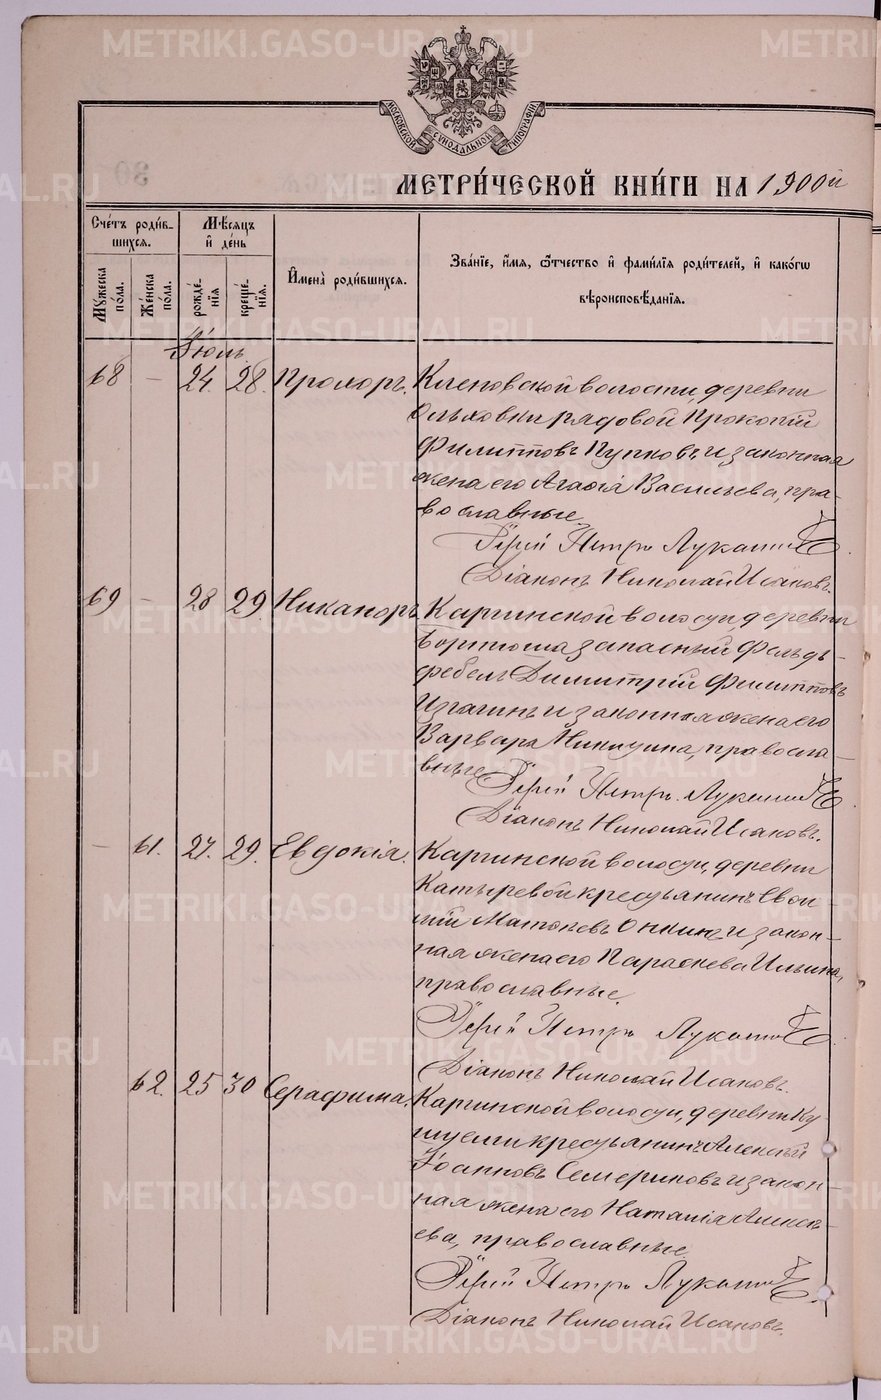 METRIKI.GASO-URAL.RU
МОСКОВСКОЙ СѴНОДАЛЬНОЙ ТИПОГРАФІИ
МЕТРИ́ЧЕСКОЙ КНИ́ГИ НА 1900й
Сче́тъ роди́в-
шихсѧ.
Мѣ́сѧцъ
и҆ де́нь
И҆мена̀ роди́вшихсѧ.
Зва́нїе, и҆́мѧ, ѻ҆́тчество и҆ фами́лїѧ роди́телей, и҆ како́гѡ
вѣроисповѣ́данїѧ.
Мꙋ́жеска
по́ла.
Же́нска
по́ла.
рожде́-
нїѧ
креще́-
нїѧ.
Іюль.
68 – 24. 28. Прохоръ. Кленовской волости, деревни
Ольховки рядовой Прокопій
Филипповъ Пупковъ и законная
жена его Агафія Васильева, пра-
вославные
Іерей Петръ
Діаконъ Николай Исаковъ.
69 – 28 29. Никаноръ Каргинской волости, деревни
запасный фельд-
фебель Димитрій Филипповъ
и законная жена его
Варвара Никитина, правосла-
вные
Іерей Петръ
Діаконъ Николай Исаковъ.
– 61. 27. 29. Евдокія. Каргинской волости, деревни
Катыревой крестьянинъ
и закон-
ная жена его Параскева Ильина,
православные.
Іерей Петръ
Діаконъ Николай Исаковъ.
62. 25 30 Серафима. Каргинской волости, деревни Ку-
крестьянинъ Алексѣй
Іоанновъ Семериковъ и закон-
ная жена его Наталія Алексѣ-
ева, православные
Іерей Петръ
Діаконъ Николай Исаковъ.